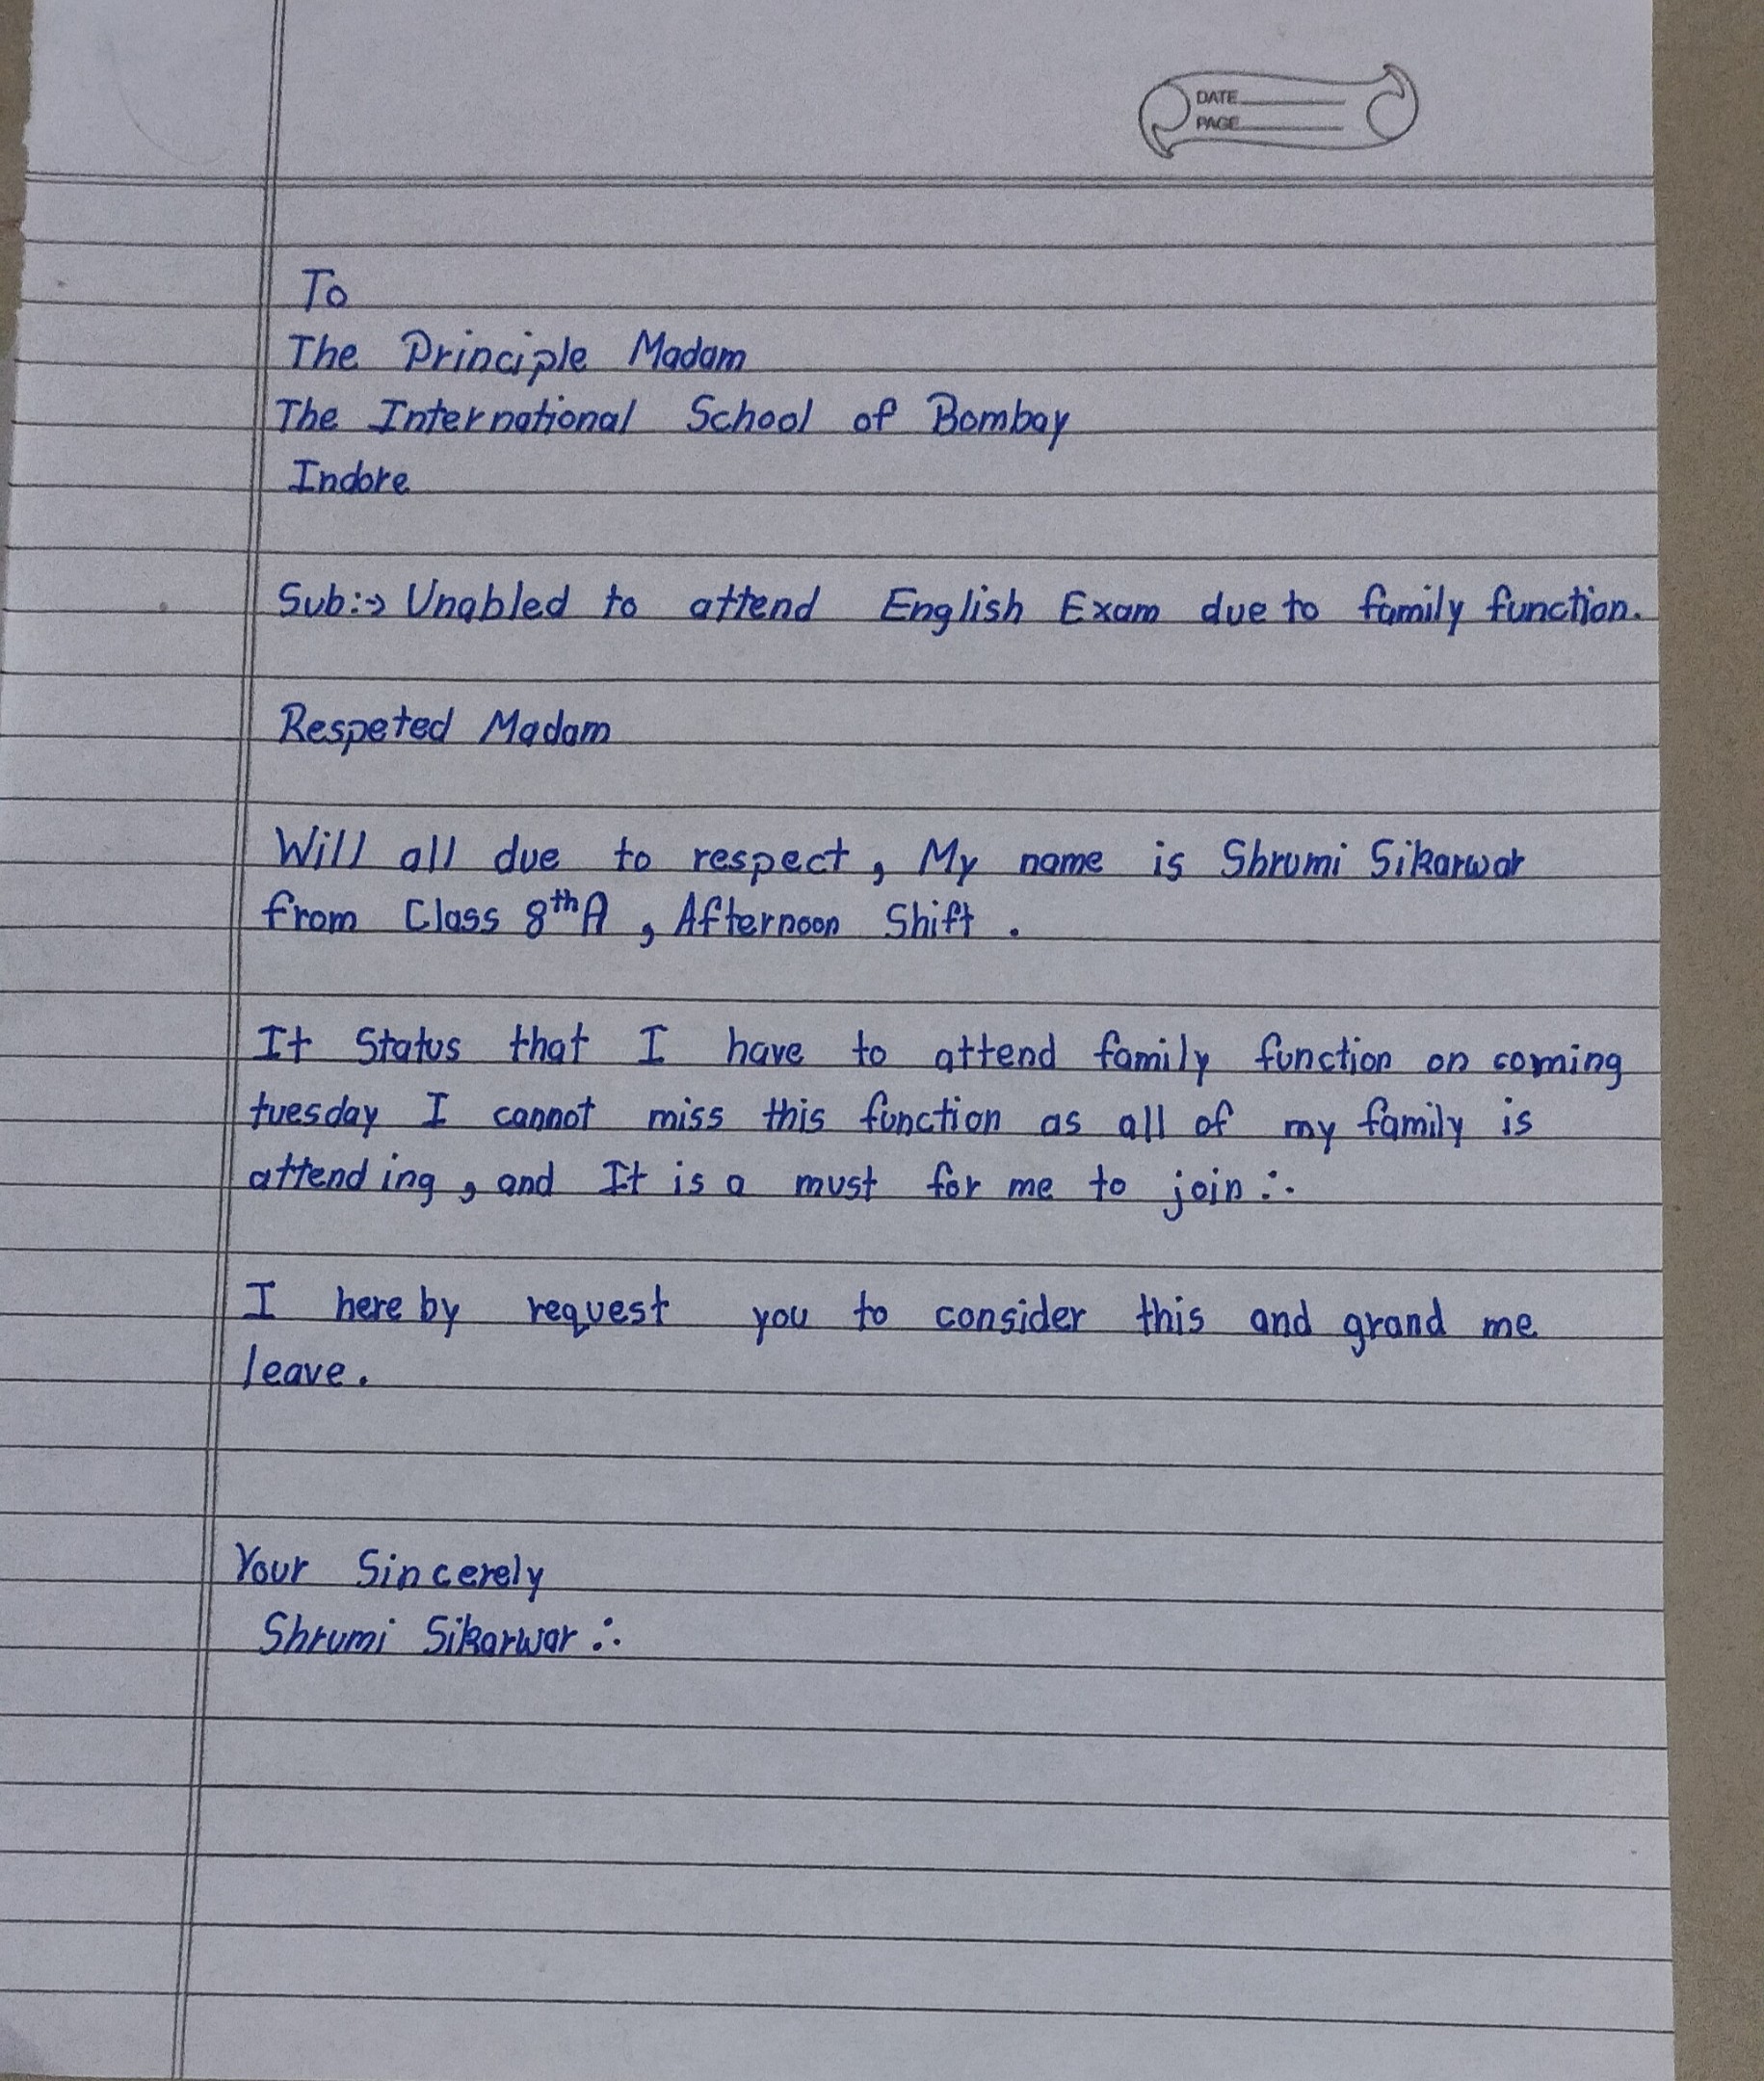 DATE
PAGE
To
The Principle Madam
The International School of Bombay
Indore
Sub:→ Unabled to attend English Exam due to family function.
Respeted Madam
Will all due to respect, My name is Shrumi Sikarwar
from Class 8th A, Afternoon Shift.
It Status that I have to attend family function on coming
tuesday I cannot miss this function as all of my family is
attending, and It is a must for me to join ∴
I here by request you to consider this and grand me
leave.
Your Sincerely
Shrumi Sikarwar ∴